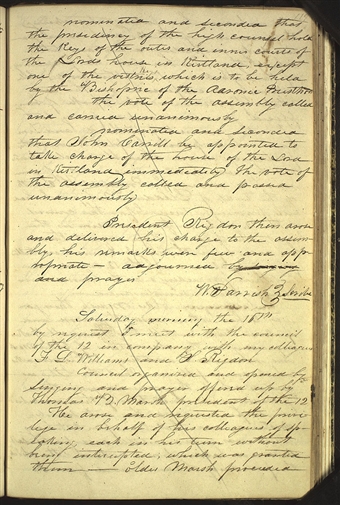 nominated and seconded that
the presidency of the high counsel hold
the Keys of the outer and inner courts of
the Lords house in Kirtland, except
one of the vestries, which is to be held
by the Bishopric of the Aaronic Priesthood
the vote of the assembly called
and carried unanimously
nominated and seconded
that John Corrill be appointed to
take charge of the house of the Lord
in Kirtland immediately The vote of
the assembly called and passed
unanimously
President Rigdon then arose
and delivered his charge to the assem
bly, his remarks were few and app-
ropriate adjourned by singing
and prayer
W. Parrish Scribe
Saturday morning the 16th
by request I meet with the council
of the 12 in company with my colleagues
F G Williams and S Rigdon
Council organized and opened by
singing and prayer offered up by
Thomas B. Marsh president of the 12
He arose and requested the privi
lege in behalf of his colleagues of sp-
eaking each in his turn without
being interrupted, which was granted
them — elder Marsh proceeded